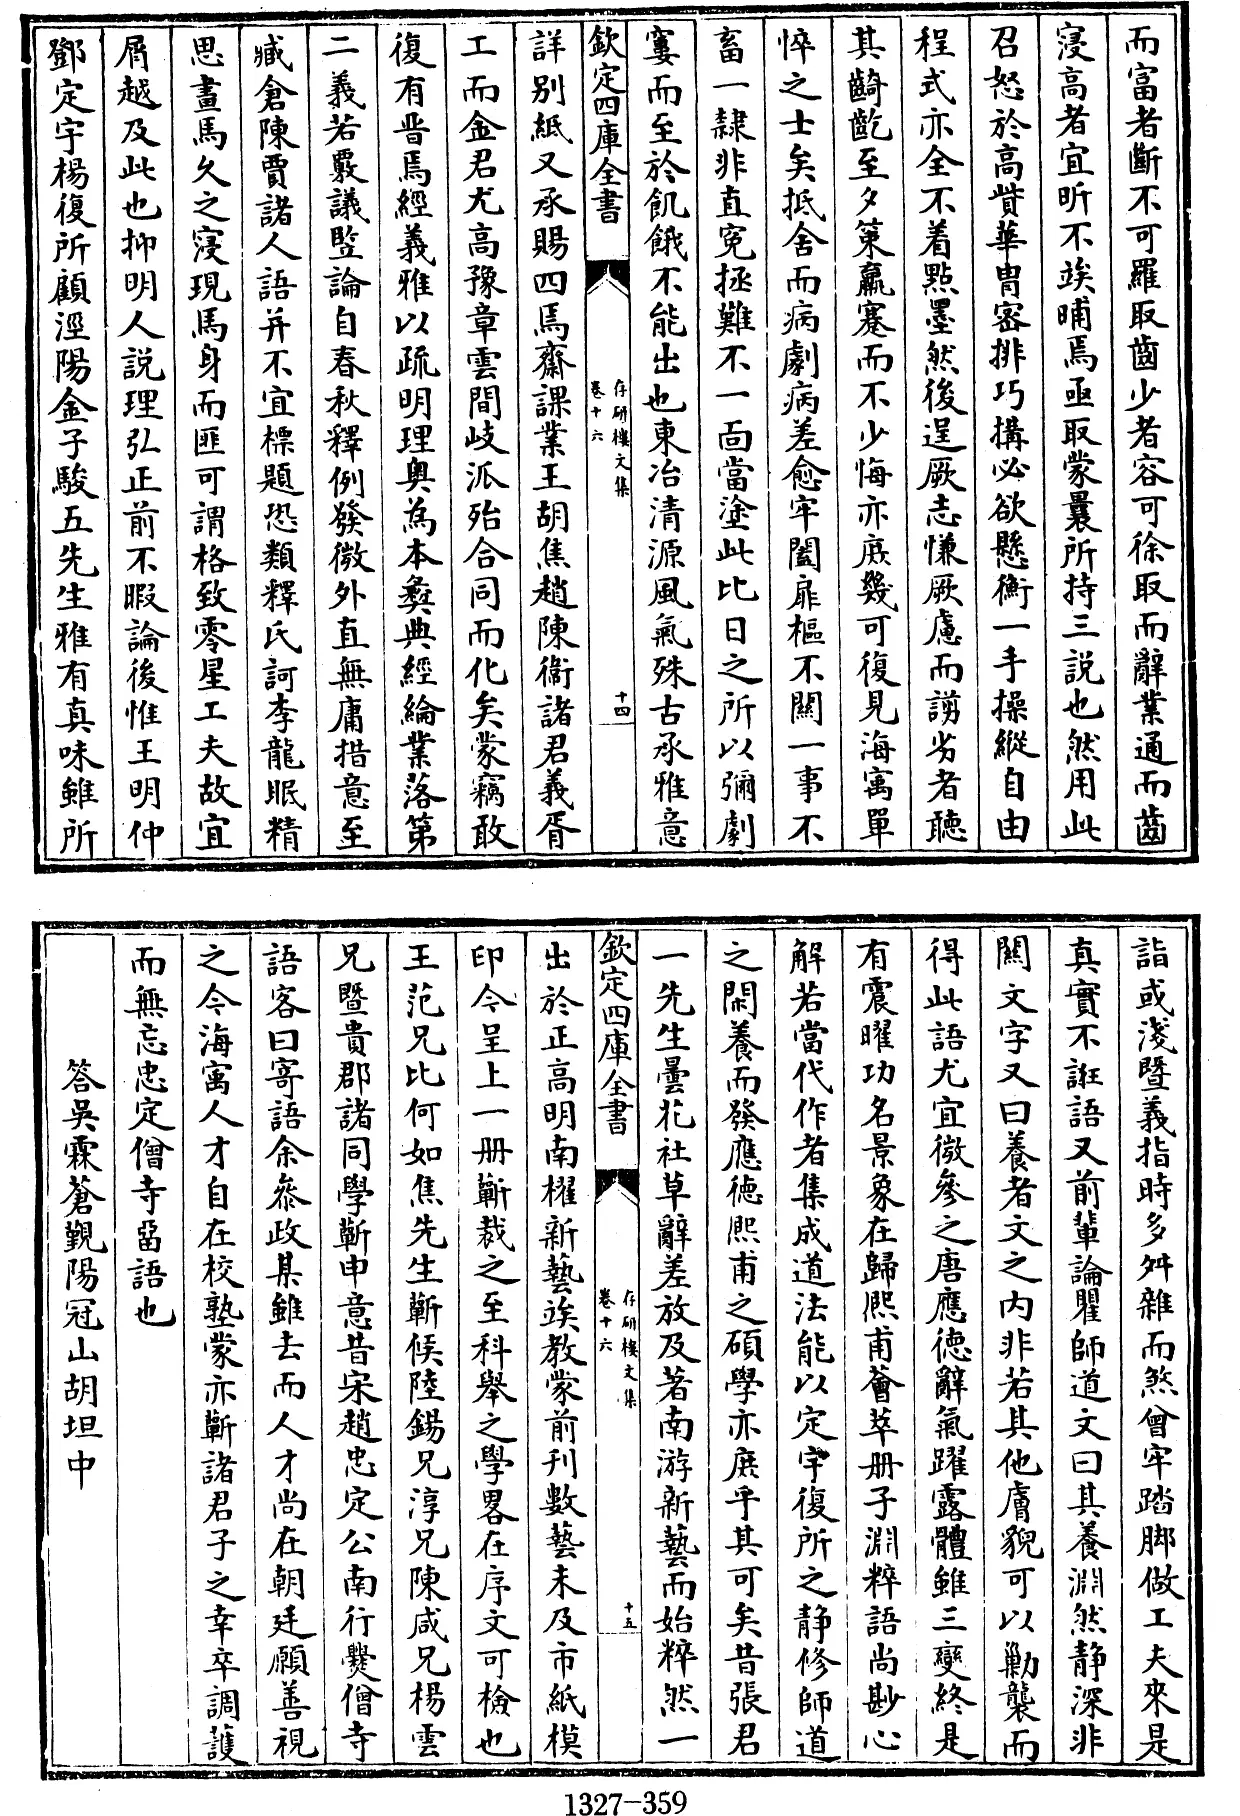 而富者斷不可羅取齒少者容可徐取而辭業通而齒
寖高者宜昕不竢晡焉亟取蒙曩所持三說也然用此
召怒於高貲華胄密排巧搆必欲懸衡一手操縱自由
程式亦全不着點墨然後逞厥志慊厥慮而謭劣者聽
其齮齕至夕策羸蹇而不少悔亦庻幾可復見海寓單
悴之士矣抵舍而病劇病差愈牢闔扉樞不關一事不
畜一隸非直寃拯難不一靣當塗此比日之所以彌劇
窶而至於飢餓不能出也東冶清源風氣殊古承雅意
欽定四庫全書
存研樓文集
卷十六
十四
詳别紙又承賜四焉齋課業王胡焦趙陳衛諸君義胥
工而金君尤高豫章雲間岐派殆合同而化矣蒙竊敢
復有晋焉經義雅以疏明理奥為本彝典經綸業落第
二義若覈議監論自春秋釋例發微外直無庸措意至
臧倉陳賈諸人語并不宜標題恐類釋氏訶李龍眠精
思畫馬久之寖現馬身而匪可謂格致零星工夫故宜
屑越及此也抑明人説理弘正前不暇論後惟王明仲
鄧定宇楊復所顧涇陽金子駿五先生雅有真味雖所
詣或淺暨義指時多舛雜而煞曾牢踏脚做工夫來是
真實不誑語又前輩論瞿師道文曰其養淵然静深非
關文字又曰養者文之内非若其他膚貌可以勦襲而
得此語尤宜微參之唐應徳辭氣躍露體雖三變終是
有震曜功名景象在歸熙甫薈萃册子淵粹語尚尠心
解若當代作者集成道法能以定宇復所之静修師道
之閑養而發應徳熙甫之碩學亦庻乎其可矣昔張君
一先生曇花社草辭差放及著南游新藝而始粹然一
欽定四庫全書
存研樓文集
卷十六
十五
出於正高明南櫂新藝竢教蒙前刋數藝未及市紙模
印今呈上一册蘄裁之至科舉之學畧在序文可檢也
王范兄比何如焦先生蘄候陸錫兄淳兄陳咸兄楊雲
兄暨貴郡諸同學蘄申意昔宋趙忠定公南行爨僧寺
語客曰寄語余叅政某雖去而人才尚在朝廷願善視
之今海寓人才自在校塾蒙亦蘄諸君子之幸卒調護
而無忘忠定僧寺畱語也
答吳霖蒼觀陽冠山胡坦中
1327-359